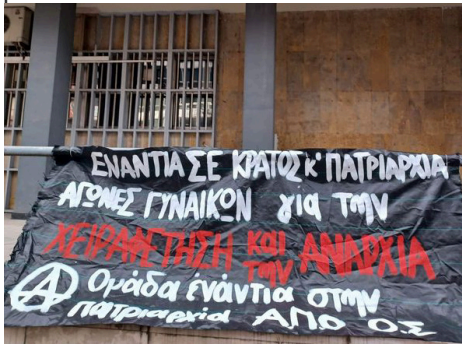 ΕΝΑΝΤΙΑ ΣΕ ΚΡΑΤΟΣ Κ' ΠΑΤΡΙΑΡΧΙΑ
ΑΓΩΝΕΣ ΓΥΝΑΙΚΩΝ για την
ΧΕΙΡΑΦΕΤΗΣΗ και την ΑΝΑΡΧΙΑ
Ομάδα ενάντια στην
πατριαρχία ΑΠΟ Ο.Σ